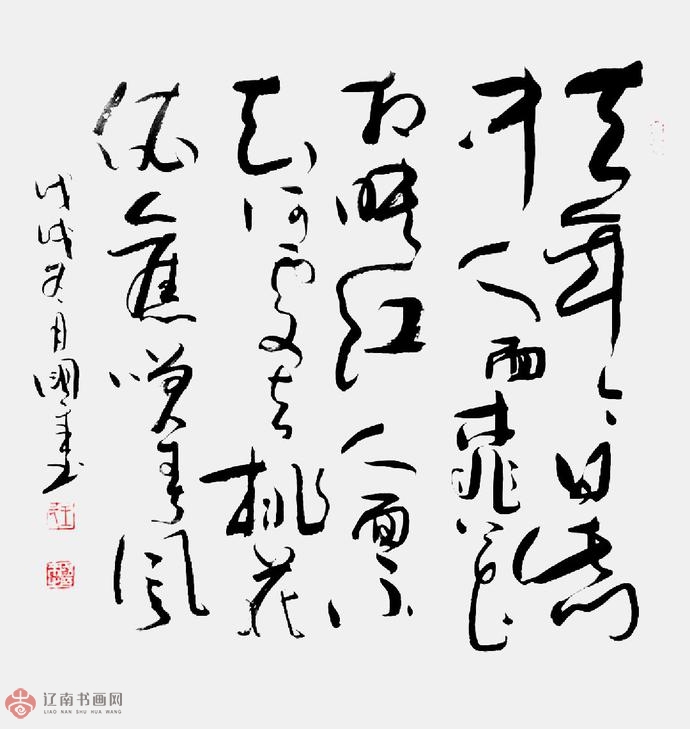 去年今日此門
中人面桃花
相映紅人面不
知何處去桃花
依舊笑春風
戊戌冬月國書
辽南书画网
LIAO NAN SHU HUA WANG